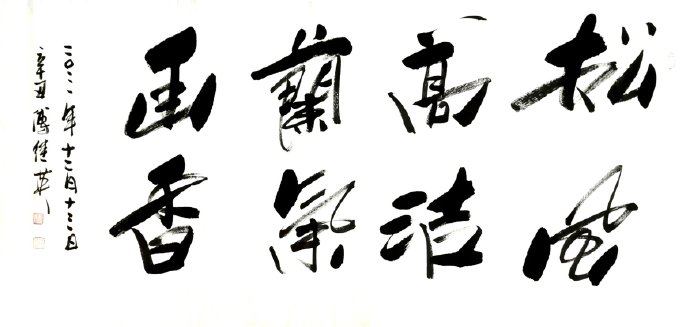 松風
高洁
蘭氣
幽香
二〇二一年十二月十二日
辛丑 傅佳英